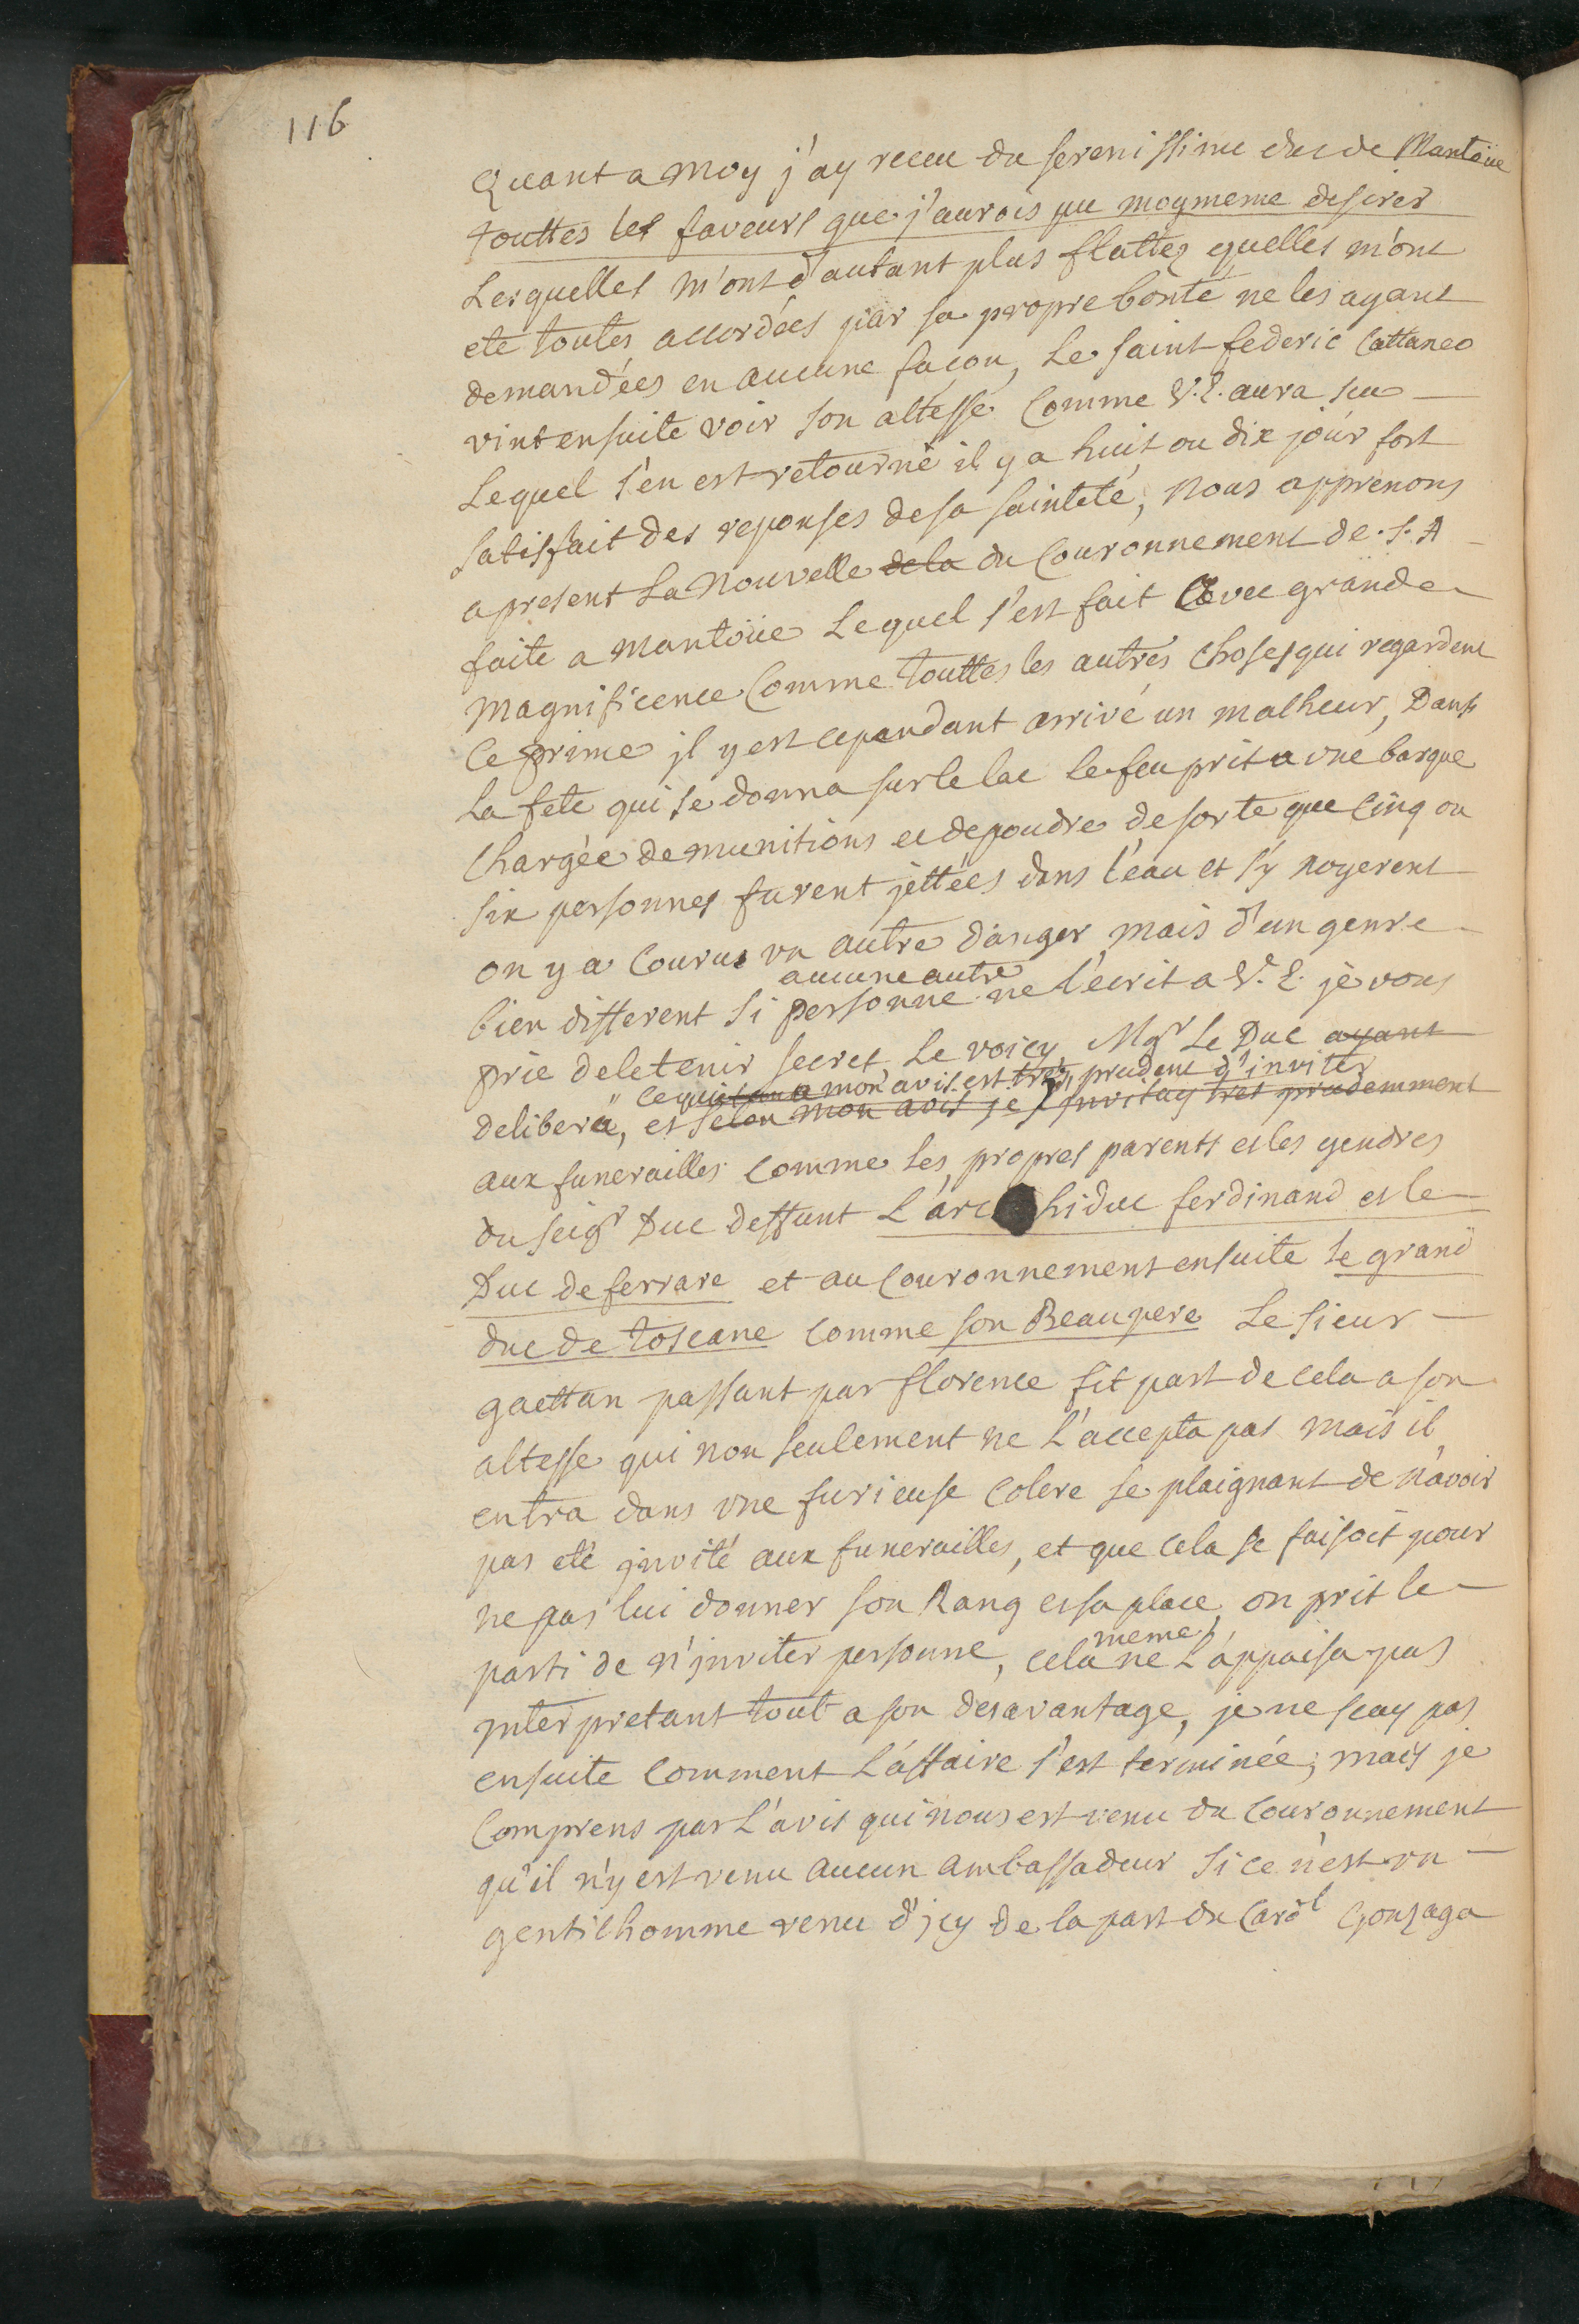 116
Quant a moy j'ay receu du serenissime duc de Mantoüe
touttes les faveurs que j'aurois pu moymeme desirer
Lesquelles m'ont d'autant plus flattez quelles m'ont
ete toutes accordées par sa propre bonté ne les ayant
demandées en aucune facon, Le saint federic Cattaneo
vint ensuite voir son altesse Comme V.E. aura sceu
Lequel s'en est retourné il y a huit ou dix jour fort
satisfait des reponses de sa sainteté, Nous apprenons
apresent La Nouvelle de la du Couronnement de S. A
faite a Mantoüe Lequel s'est fait avec grande
magnificence Comme touttes les autres choses qui regardent
Ce prince jl y est cependant arrivé un malheur, Dans
La fete qui se donna sur le lac le feu prit a une barque
Chargée de munitions et de poudre de sorte que Cinq ou
six personnes furent jettées dans l'eau et s'y noyerent
on y a Courus un autre danger mais d'un genre
aucune autre
bien different si personne ne l'ecrit a V. E. je vous
prie de le tenir secret Le voicy, Mgr Le Duc ayant
ce qui a mon avis est tres prudent d'inviter
delibera, et selon mon avis je l'invitay tres prudemment
aux funerailles Comme les propres parents et les gendres
du seigr Duc deffunt L'archiduc ferdinand et le
Duc de ferrare et au Couronnement ensuite le grand
duc de toscane Comme son Beaupere Le sieur
gaettan passant par florence fit part de cela a son
altesse qui non seulement ne L'accepta pas mais il
entra dans une furieuse Colere se plaignant de n'avoir
pas eté jnvité aux funerailles, et que cela se faisoit pour
ne pas lui donner son Rang et sa place, on prit le
parti de n'jnviter personne, cela meme ne L'appaisa pas
jnterpretant tout a son desavantage, je ne scay pas
ensuite Comment L'affaire s'est terminée, mais je
Comprens par L'avis qui nous est venu du Couronnement
qu'il n'y est venu aucun ambassadeur si ce n'est un
gentilhomme venu d'jcy de la part du Cardl Gonzaga